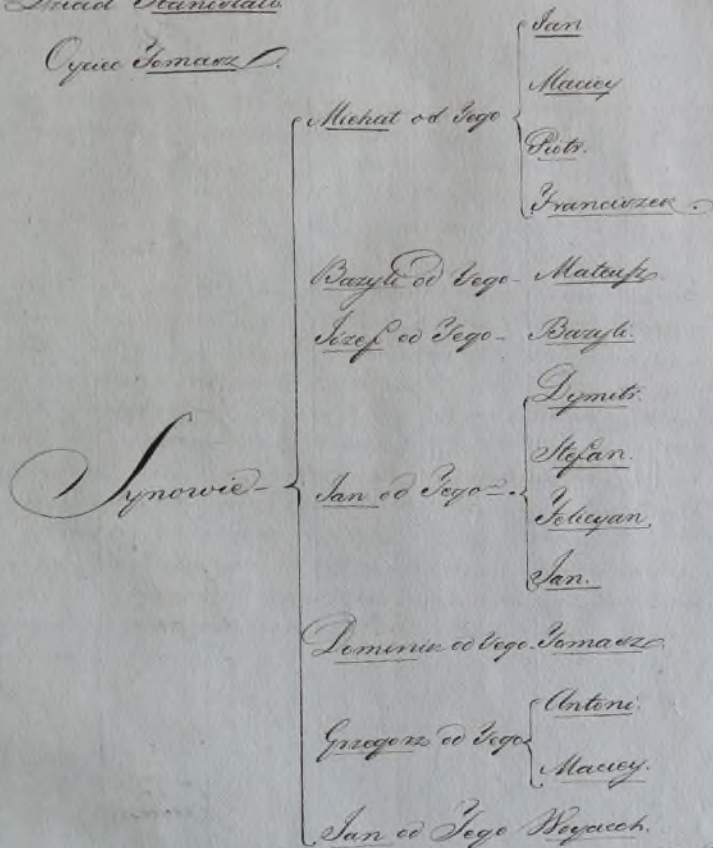 Dziad Stanisław
Oyciec Tomasz
Synowie -
Michał od Tego
Jan
Maciey
Piotr.
Franciszek.
Bazyli od Tego - Mateusz.
Józef od Tego - Bazyli.
Jan od Tego -
Dymitr.
Stefan.
Felicyan,
Jan.
Dominik od Tego. Tomasz.
Grzegorz od Tego
Antoni.
Maciey.
Jan od Tego Woyciech.